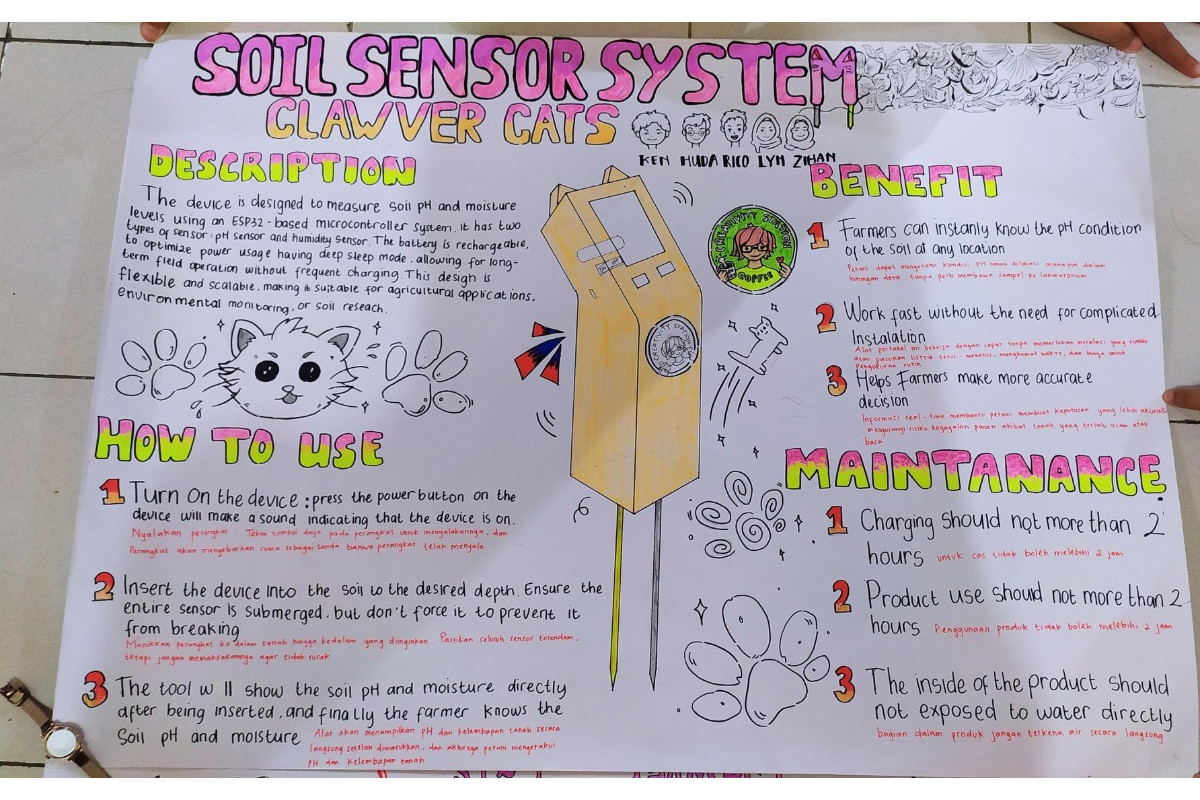 SOIL SENSOR SYSTEM
CLAWVER CATS
KEN HUDA RICO LYN ZIHAN
DESCRIPTION
The device is designed to measure soil pH and moisture
levels using an ESP32-based microcontroller system. it has two
types of sensor: pH sensor and humidity sensor. The battery is rechargeable,
to optimize power usage having deep sleep mode. allowing for long-
term field operation without frequent charging. This design is
flexible and scalable, making it suitable for agricultural applications,
environmental monitoring, or soil reseach.
HOW TO USE
1 Turn On the device: press the power button on the
device will make a sound indicating that the device is on.
Nyalakan perangkat Tekan tombol daya pada perangkat untuk menyalakannya, dan
Perangkat akan mengeluarkan suara sebagai tanda bahwa perangkat telah menyala
2 Insert the device into the soil to the desired depth. Ensure the
entire sensor is submerged. but don't force it to prevent it
from breaking
Masukkan perangkat ke dalam tanah hingga kedalam yang diinginkan Pastikan seluruh sensor terendam,
tetapi jangan memaksakannya agar tidak rusak
3 The tool will show the soil pH and moisture directly
after being inserted, and finally the farmer knows the
Soil pH and moisture
Alat akan menampilkan pH dan kelembapan tanah secara
langsung setelah dimasukkan, dan akhirnya petani mengetahui
pH dan kelembapan tanah
CREATIVITY STATION
COFFEE
CREATIVITY STATION
BENEFIT
1 Farmers can instanly know the pH condition
of the soil at any location
Petani dapat mengetahui kondisi pH tanah dilokasi manapun dalam
hitungan detik, tanpa perlu membawa sampel ke laboratorium
2 Work fast without the need for complicated
Instalation
Alat portabel ini bekerja dengan cepat tanpa memerlukan instalasi yang rumit
atau pasokan listrik terus-menerus, menghemat waktu, dan biaya untuk
pengukuran rutin
3 Helps Farmers make more accurate
decision
Informasi real-time membantu petani membuat keputusan yang lebih akurat
mengurangi risiko kegagalan panen akibat tanah yang terlalu asam atau
basa
MAINTANANCE
1 Charging should not more than 2
hours untuk cas tidak boleh melebihi 2 jam
2 Product use should not more than 2
hours Penggunaan produk tidak boleh melebihi 2 jam
3 The inside of the product should
not exposed to water directly
bagian dalam produk jangan terkena air secara langsung